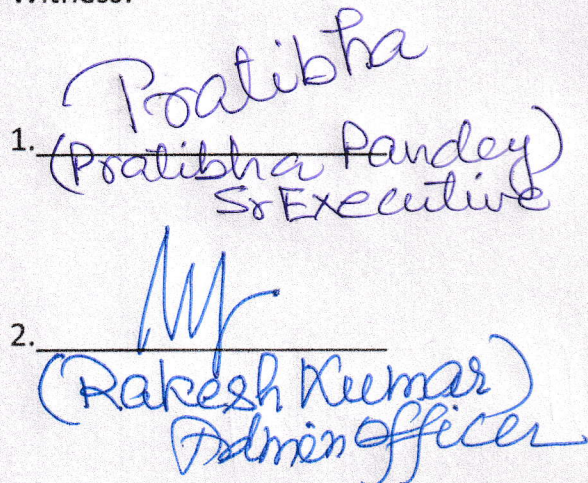 Witness:
Pratibha
1.
(Pratibha Pandey)
Sr Executive
2.
(Rakesh Kumar)
Admin Officer